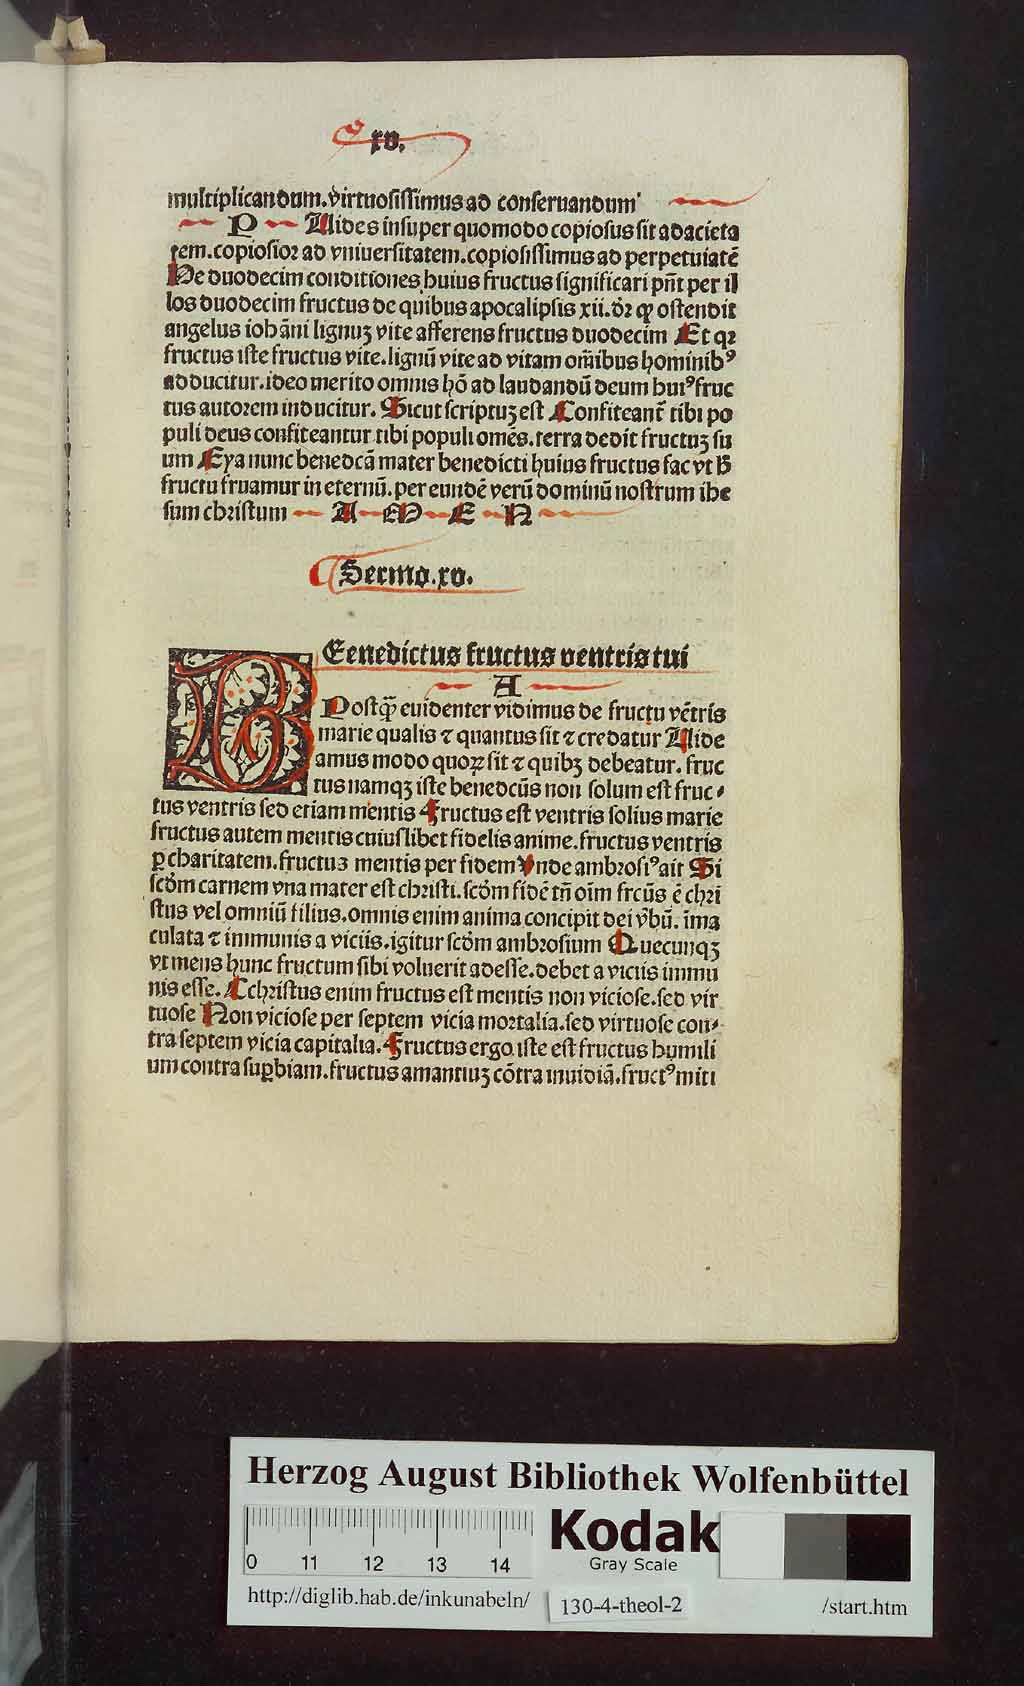 xv.
multiplicandum.v̓irtuosissimus ad conseruandum
P Uides insuper quomodo copiosus sit ad acieta
tem.copiosior ad vniuersitatem.copiosissimus ad perpetuiatē
He duodecim conditiones huius fructus significari pn̄t per il
los duodecim fructus de quibus apocalipsis xii.dr̄ ꝙ ostendit
angelus iohāni lignuʒ vite afferens fructus duodecim Et qꝛ
fructus iste fructus vite.lignū vite ad vitam om̄ibus hominibꝰ
adducitur.ideo merito omnis hō ad laudandū deum huiꝰ fruc
tus autorem inducitur. Sicut scriptuʒ est Confiteant᷑ tibi po
puli deus confiteantur tibi populi omēs.terra dedit fructuʒ su
um Eya nunc benedcā mater benedicti huius fructus fac vt h̄
fructu fruamur in eternū.per eundē verū dominū nostrum ihe
sum christum A M E N
Sermo.xv.
BEenedictus fructus ventris tui
A
Postqꝫ euidenter vidimus de fructu vētris
marie qualis ⁊ quantus sit ⁊ credatur Uide
amus modo quoꝝ sit ⁊ quibʒ debeatur. fruc
tus namqʒ iste benedcūs non solum est fruc⸗
tus ventris sed etiam mentis Fructus est ventris solius marie
fructus autem mentis cuiuslibet fidelis anime.fructus ventris
ꝑ charitatem.fructuʒ mentis per fidem Vnde ambrosiꝰ ait Si
scd̓m carnem vna mater est christi.scd̓m fidē tn̄ oīm frcūs ē chri
stus vel omniū filius.omnis enim anima concipit dei v̓bū. īma
culata ⁊ immunis a viciis.igitur scd̓m ambrosium Quecunqʒ
vt mens hunc fructum sibi voluerit adesse.debet a viciis immu
nis esse. Cchristus enim fructus est mentis non viciose.sed vir
tuose Non viciose per septem vicia mortalia.sed virtuose con⸗
tra septem vicia capitalia. Fructus ergo iste est fructus humili
um contra suꝑbiam.fructus amantiuʒ cōtra inuidiā.fructꝰ miti
Herzog August Bibliothek Wolfenbüttel
0 11 12 13 14
Kodak
Gray Scale
http://diglib.hab.de/inkunabeln/ 130-4-theol-2 /start.htm